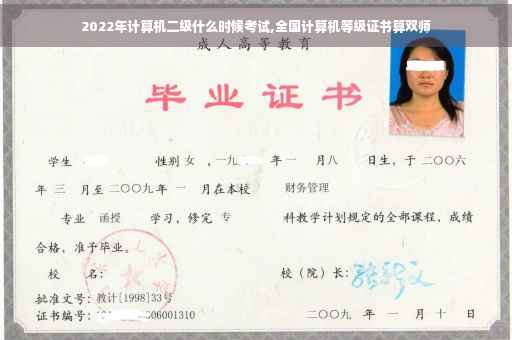 2022年计算机二级什么时候考试,全国计算机等级证书算双师
成人高等教育
毕业证书
学生 性别 女 ，一九 年 一 月八 日生，于 二〇〇六
年 三 月至 二〇〇九 年 一 月在本校 财务管理
专业 函授 学习，修完 专 科教学计划规定的全部课程，成绩
合格，准予毕业。
校 名： 校（院）长：
批准文号：教计[1998]33号
证书编号： 06001310 二〇〇九 年 一 月 十 日